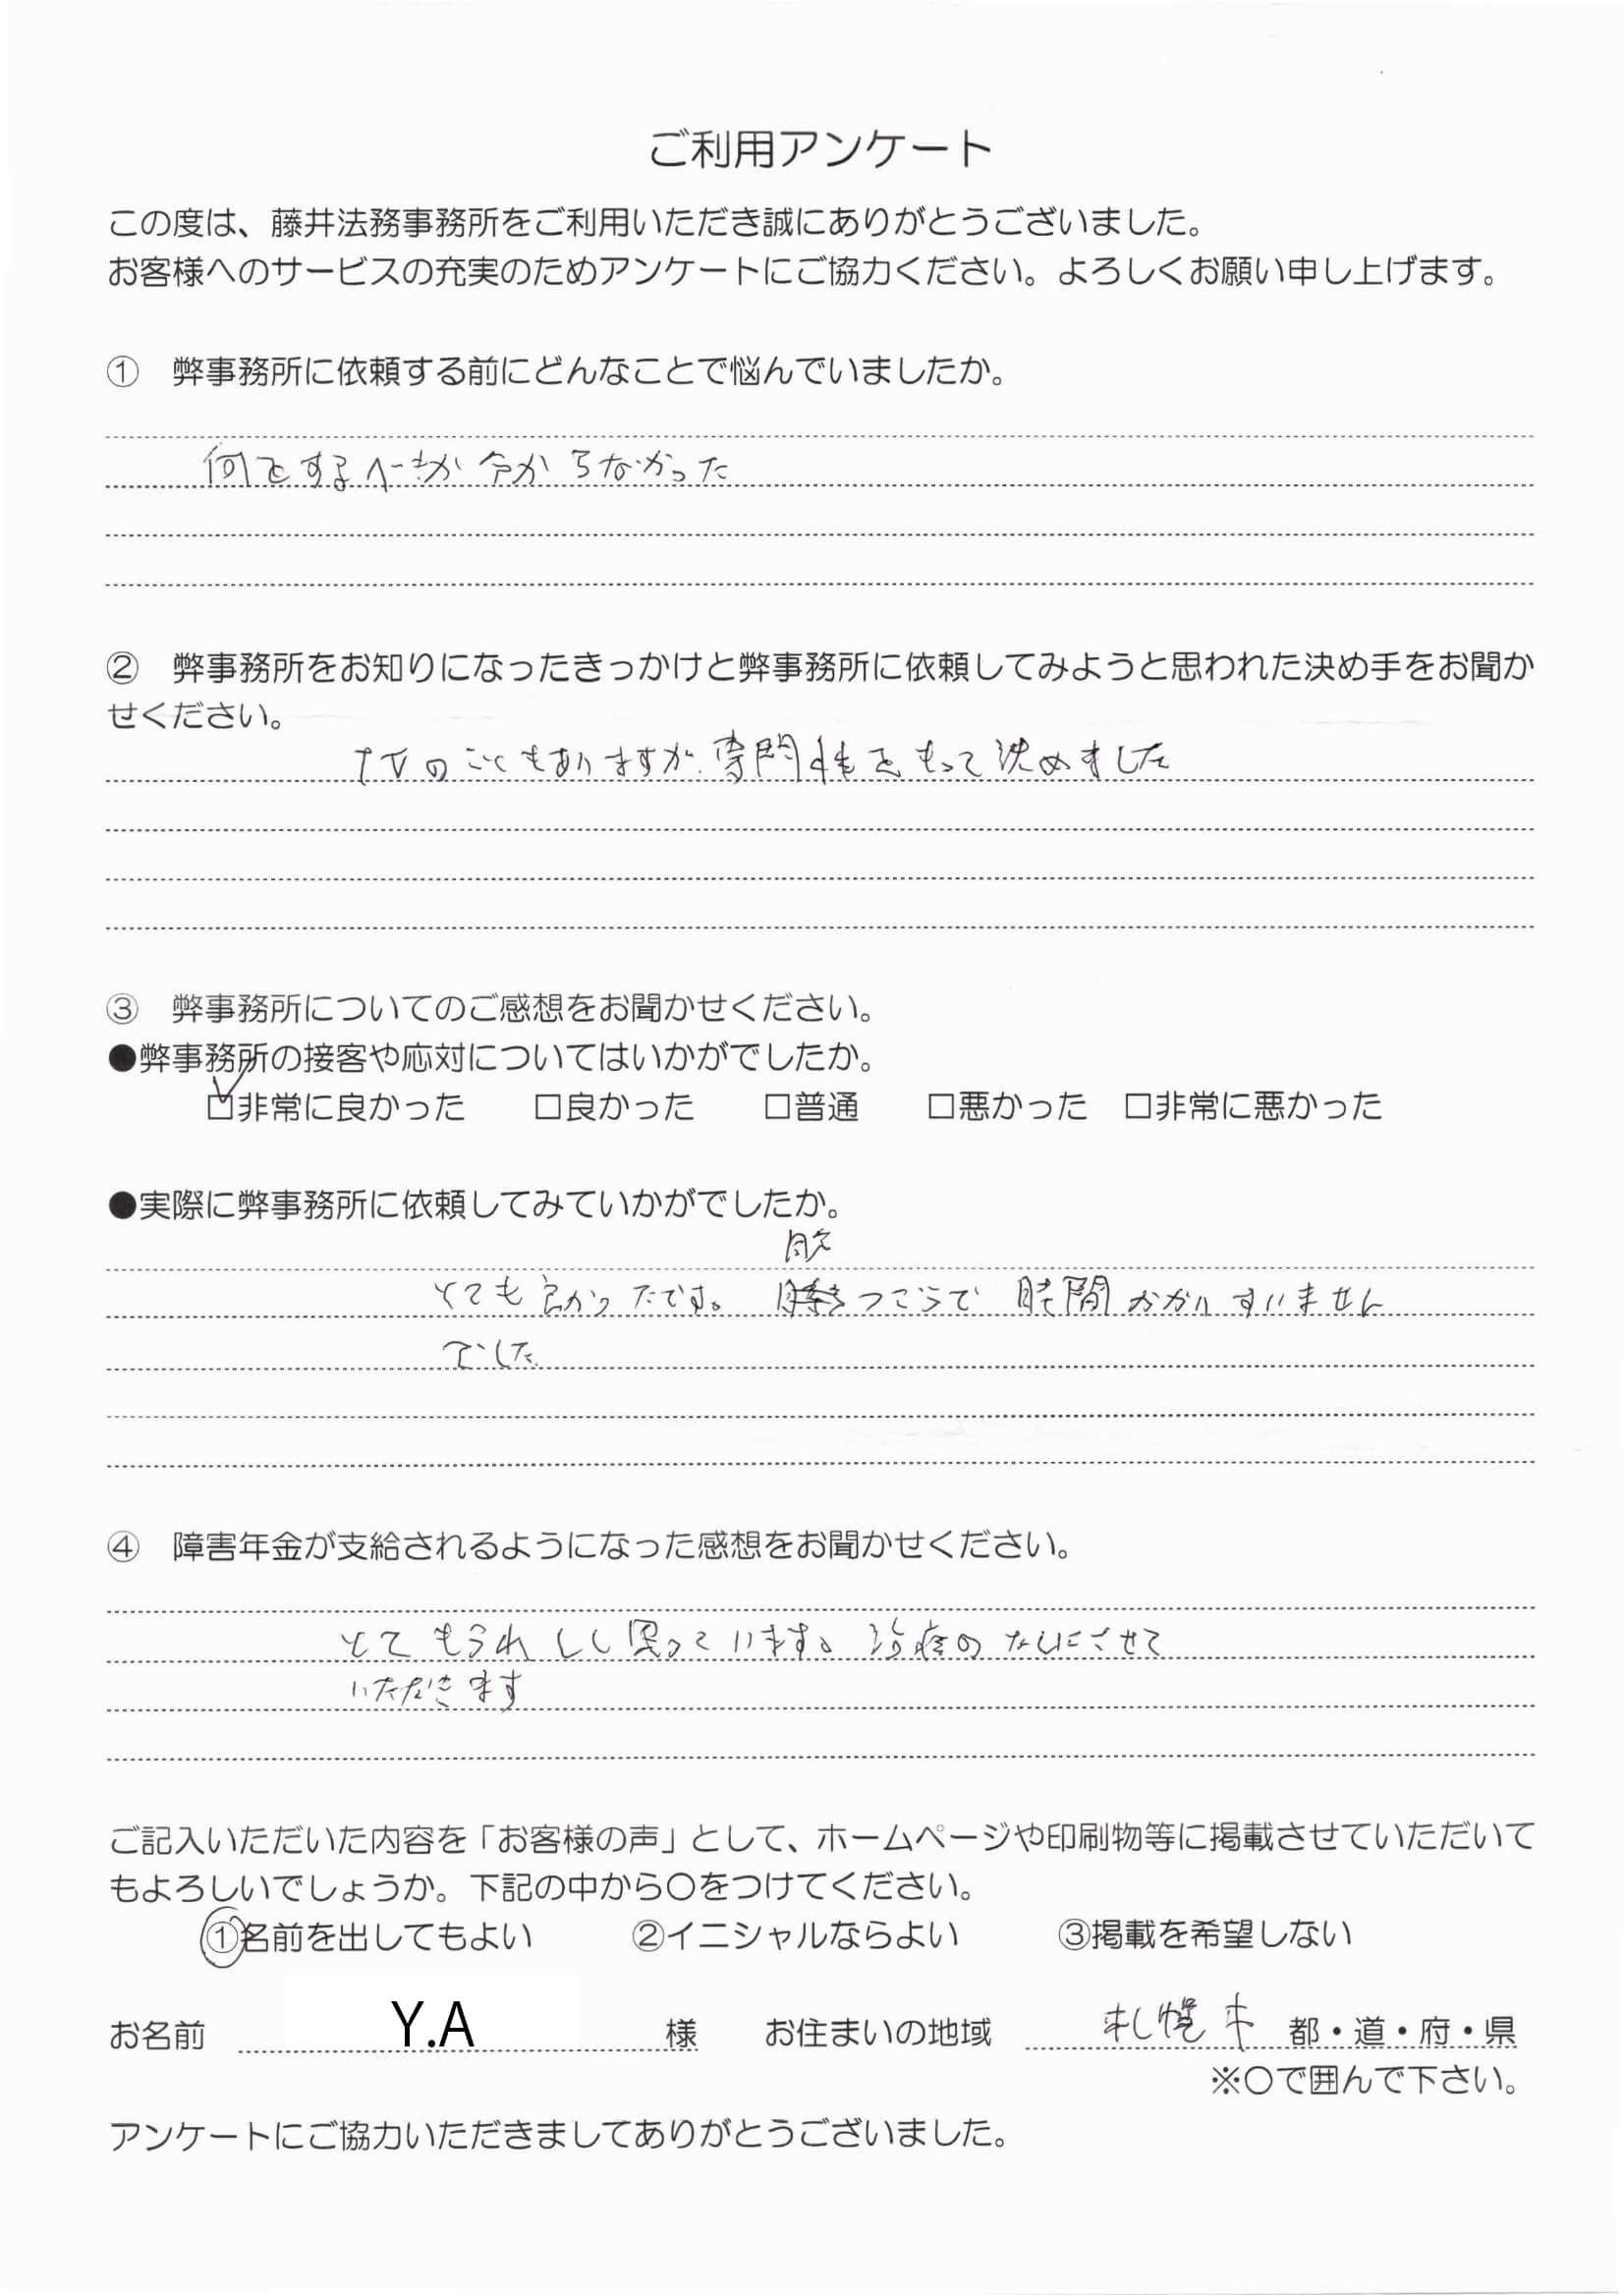 ご利用アンケート
この度は、藤井法務事務所をご利用いただき誠にありがとうございました。
お客様へのサービスの充実のためアンケートにご協力ください。よろしくお願い申し上げます。
① 弊事務所に依頼する前にどんなことで悩んでいましたか。
何をするべきか分からなかった
② 弊事務所をお知りになったきっかけと弊事務所に依頼してみようと思われた決め手をお聞か
せください。
のこともありますが、専門性をもって決めました
③ 弊事務所についてのご感想をお聞かせください。
●弊事務所の接客や応対についてはいかがでしたか。
☑非常に良かった □良かった □普通 □悪かった □非常に悪かった
●実際に弊事務所に依頼してみていかがでしたか。
とても良かったです。 時間かかりすいません
でした
④ 障害年金が支給されるようになった感想をお聞かせください。
とてもうれしく思っています。治療の させて
いただきます
ご記入いただいた内容を「お客様の声」として、ホームページや印刷物等に掲載させていただいて
もよろしいでしょうか。下記の中から〇をつけてください。
①名前を出してもよい ②イニシャルならよい ③掲載を希望しない
お名前 Y.A 様 お住まいの地域 札幌市 都・道・府・県
※〇で囲んで下さい。
アンケートにご協力いただきましてありがとうございました。